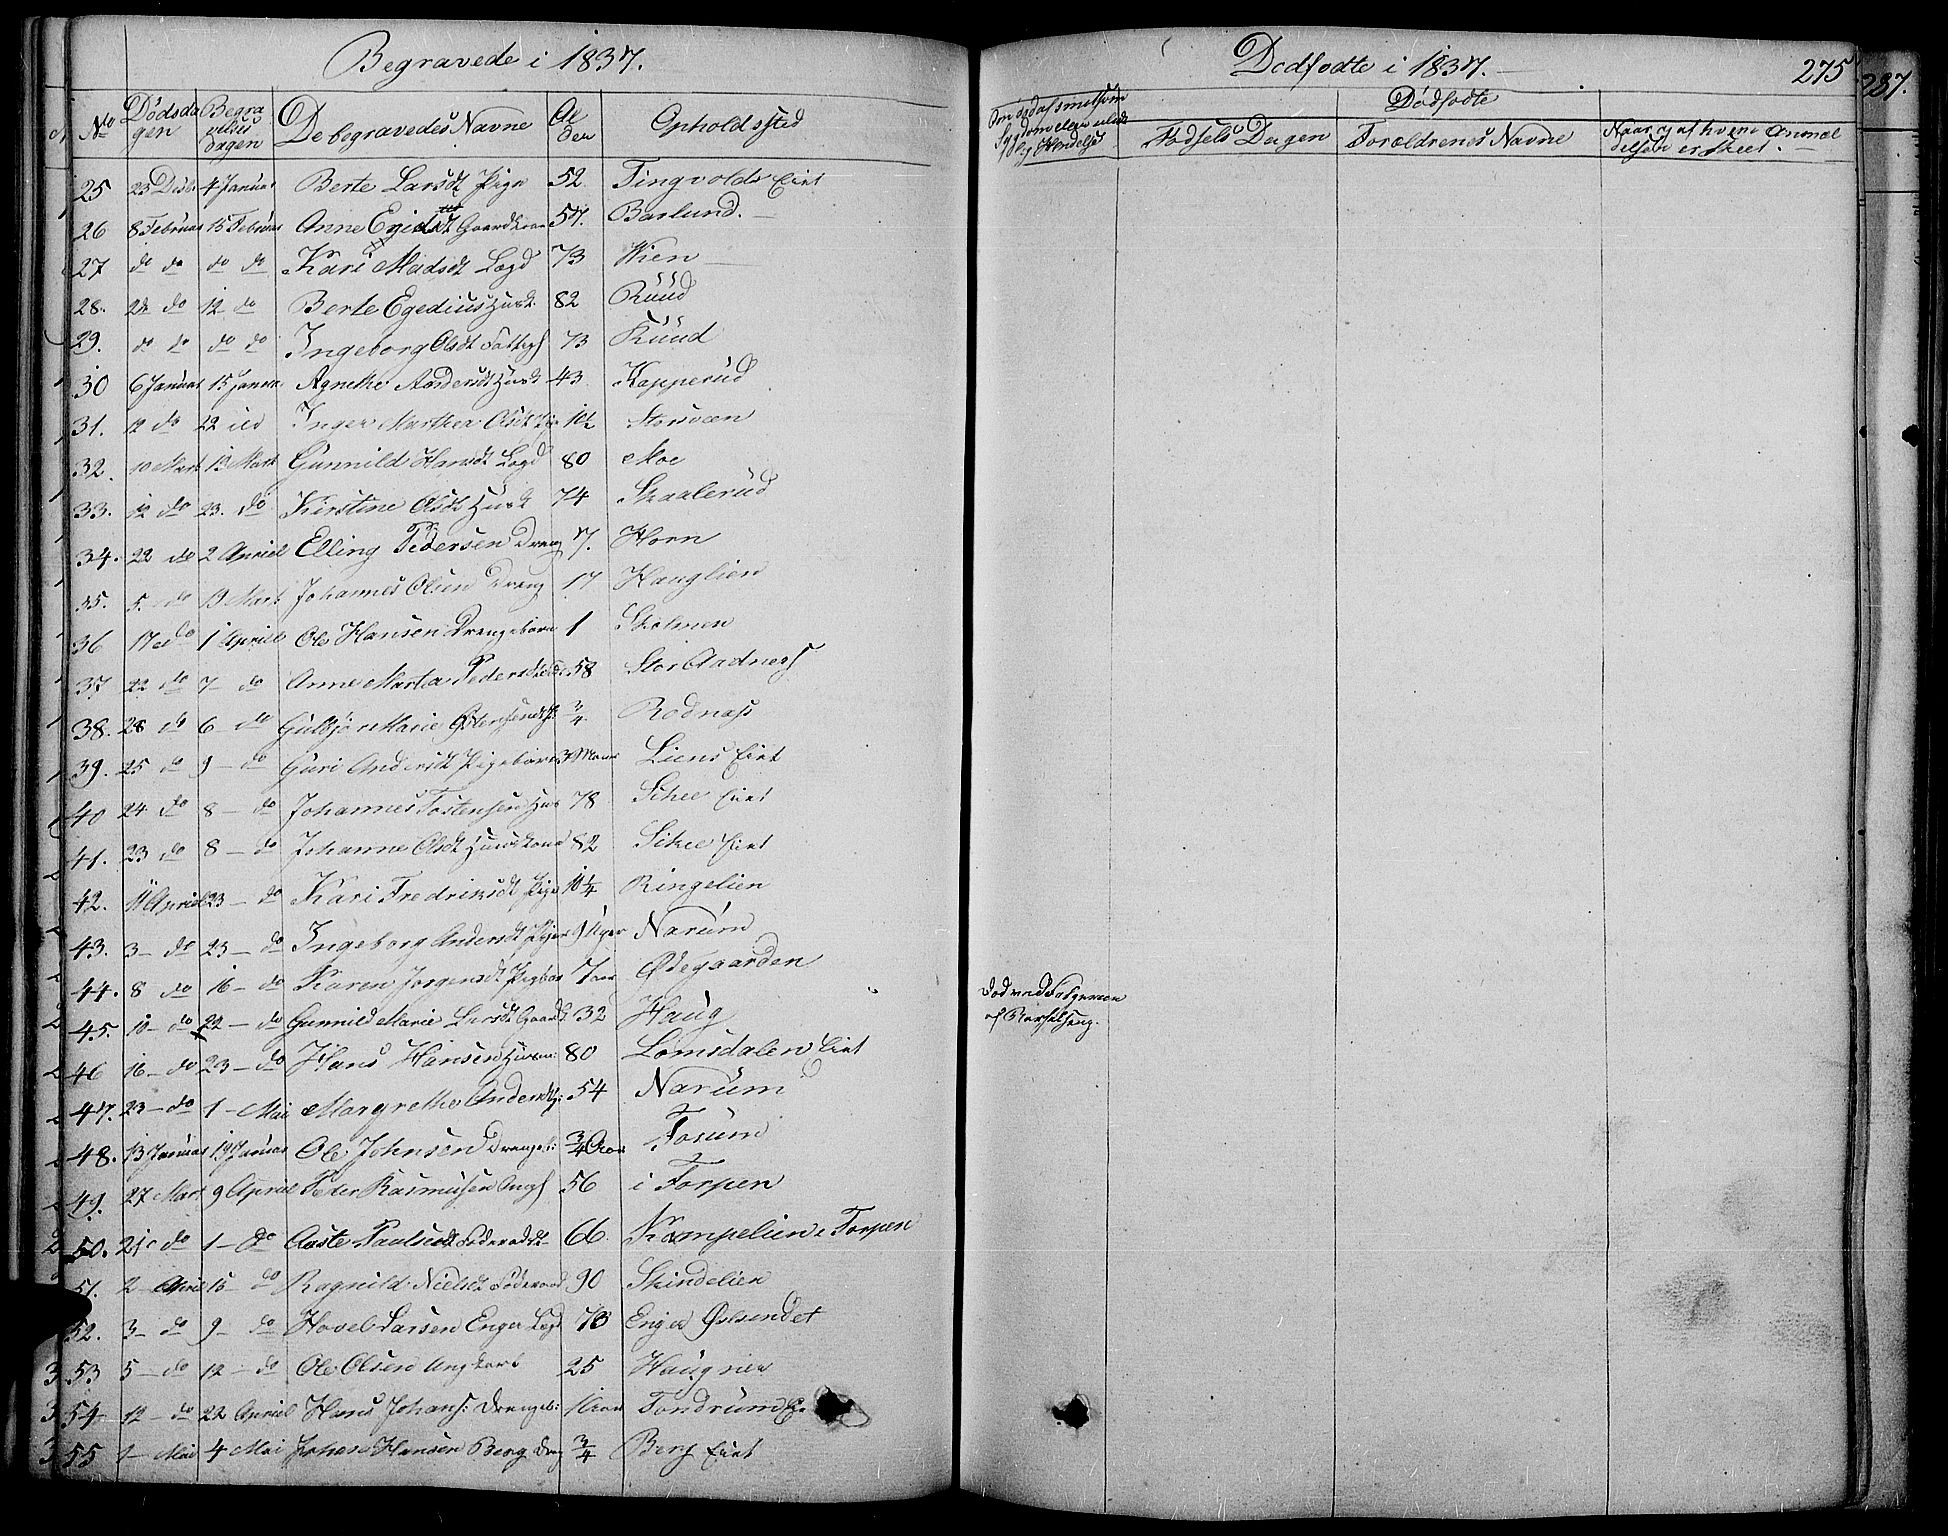 Begravede i 1837.
No Dødsdagen Begravelses dagen De begravedes Navne Alder Opholdssted
25 23 Decbr 4 Januar Berte Larsdt Pige 52 Tingvolds Eiet
26 8 Februar 15 Februar Anne Egidsdt Gaardkone 57. Barlund.
27 do do do do Kari Madsdt Lægd 73 Wien
28. 2 do 12 do Berte Egedius Husk 82 Rüüd
29. do do do do Ingeborg Olsdt Fattigl 73 Rüüd
30 6 Januar 15 Januar Agnethe Andersdt Husk 43 Kapperud
31. 12 do 22 Inger Marthea Olsdt 10½ Storsveen
32. 10 Mart 13 Mart Gunnild Hansdt Lægd 80 Moe
33. 12 do 23. do Kirstine Olsdt Husk 74 Skaalerud
34. 22 do 2 Apriel Elling Pedersen Dreng 7. Horn
35. 5. do 13 Mart Johannes Olsen Dreng 17 Hauglien
36 17 do 1 Apriel Ole Hansen Drengebarn 1
37 22 do 7 - do Anne Martea Pedersdt 58 Stor Aadnes
38. 28 do 6 do Guldbjør Marie 3/4 Rodnæs
39. 25 do 9 - do Guri Andersdt Pigebarn 3 Liens Eiet
40 24 do 8 - do Johannes Tostensen Hus 78 Schee Eiet
41. 23 do 8 - do Johanne Olsdt Huuskone 82 Schee Eiet
42. 11 Apriel 23 - do Kari Fredriksdt Pige 10¼ Ringelien
43. 3 - do 23 - do Ingeborg Andersdt 9 Uger Narüm
44. 8 do 16 - do Karen Jørgensdt Pigbar 7 Ødegaarden
45. 10 - do 22 - do Gunnild Marie Larsdt Gaardk 32 Haug Død ved Følgerne
af Barselseng.
46 16 - do 23 - do Hans Hansen Husm: 80 Lomsdalen Eiet
47. 23 - do 1 - Mai Margrethe Andersdt 54 Narüm
48. 13 Januar 19 Januar Ole Johnsen Drengeb: 3/4 Aar Fosum
49. 27 Mart 9 Apriel Peder Rasmusen Ungk 56 i Torpen
50. 21 do 1 - do Aaste Paulsdt Føderaadt 66. Kompelien i Torpen
51. 2 - April 15 - do Ragnild Nielsdt Føderaad 90 Skindelien
52. 3 - do 9 - do Hovel Larsen Enger Lægd 73 Enger Østsendet
53 5 - do 12 - do Ole Olsen Ungkarl 25 Haugner
54 12 - do 22 Apriel Hans Johans: Drengeb: 1 Aar Tondrum
55 1 - Mai 4 Mai Johan Hansen Berg Dreng 3/4 Berg Eiet
Dødfødte i 1837. 275
Om Døden af smitsom Sygdom eller ulykkelig Hendelse
Dødfødte
Fødsels Dagen Forældrenes Navne Naar og af hvem Anmeldelsen er skeet.
287.